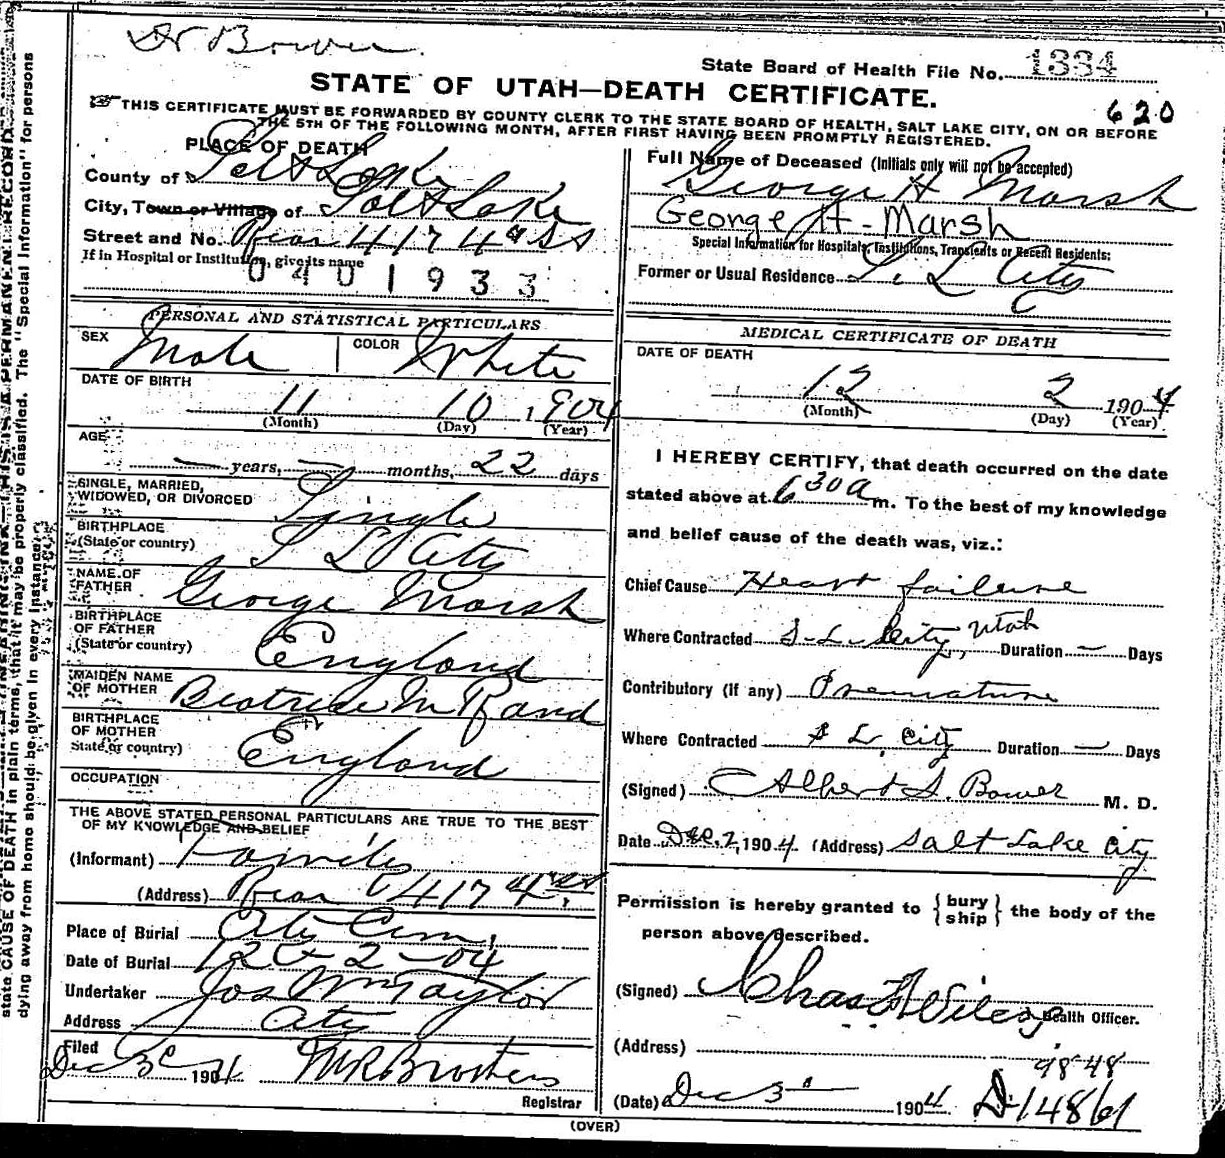 Dr Bower.
State Board of Health File No. 1334
STATE OF UTAH—DEATH CERTIFICATE.
620
THIS CERTIFICATE MUST BE FORWARDED BY COUNTY CLERK TO THE STATE BOARD OF HEALTH, SALT LAKE CITY, ON OR BEFORE
THE 5TH OF THE FOLLOWING MONTH, AFTER FIRST HAVING BEEN PROMPTLY REGISTERED.
PLACE OF DEATH
County of Salt Lake
City, Town or Village of Salt Lake
Street and No. Rear 417 4th St
If in Hospital or Institution, give its name
0401933
PERSONAL AND STATISTICAL PARTICULARS
SEX Male COLOR White
DATE OF BIRTH
11 10, 1904
(Month) (Day) (Year)
AGE
— years, — months, 22 days
SINGLE, MARRIED,
WIDOWED, OR DIVORCED Single
BIRTHPLACE
(State or country) S L City
NAME OF
FATHER George Marsh
BIRTHPLACE
OF FATHER
(State or country) England
MAIDEN NAME
OF MOTHER Beatrice M Rand
BIRTHPLACE
OF MOTHER
State or country) England
OCCUPATION
THE ABOVE STATED PERSONAL PARTICULARS ARE TRUE TO THE BEST
OF MY KNOWLEDGE AND BELIEF
(Informant) Family
(Address) Rear 417 4th St
Place of Burial City Cem,
Date of Burial 12-2-04
Undertaker Jos Wm Taylor
Address City
Filed
Dec 3d 1904 Registrar
Full Name of Deceased (Initials only will not be accepted)
George H Marsh
George H. Marsh
Special Information for Hospitals, Institutions, Transients or Recent Residents:
Former or Usual Residence S. L City
MEDICAL CERTIFICATE OF DEATH
DATE OF DEATH
12 2 1904
(Month) (Day) (Year)
I HEREBY CERTIFY, that death occurred on the date
stated above at 6 30 a m. To the best of my knowledge
and belief cause of the death was, viz.:
Chief Cause Heart failure
Where Contracted S. L. City, Utah Duration — Days
Contributory (if any) Premature
Where Contracted S L, City Duration — Days
(Signed) Albert S. Bower M. D.
Date Dec. 2, 1904 (Address) Salt Lake City
Permission is hereby granted to {bury ship} the body of the
person above described.
(Signed) Chas Health Officer.
(Address)
98-48
(Date) Dec 3d 1904 D-14861
(OVER)
state CAUSE OF DEATH in plain terms, that it may be properly classified. The "Special Information" for persons
dying away from home should be given in every instance.